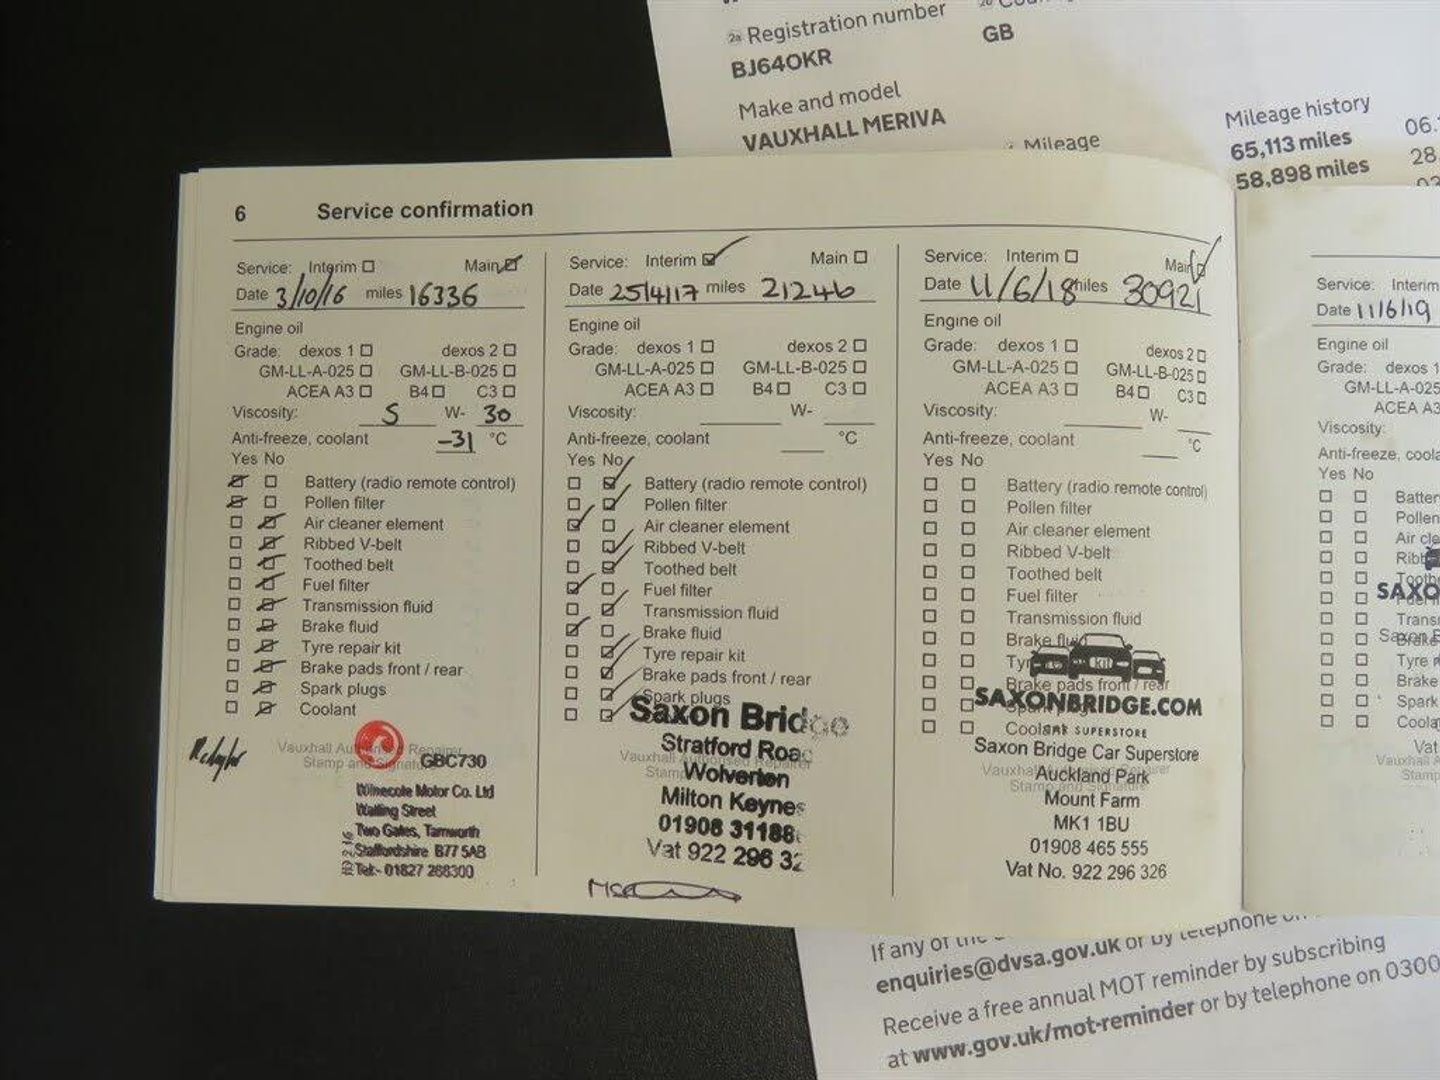 2a Registration number
BJ64OKR
GB
Make and model
VAUXHALL MERIVA
Mileage
Mileage history
65,113 miles
58,898 miles
06.
28.
6 Service confirmation
Service: Interim Main
Date 3/10/16 miles 16336
Engine oil
Grade: dexos 1 dexos 2
GM-LL-A-025 GM-LL-B-025
ACEA A3 B4 C3
Viscosity: 5 W- 30
Anti-freeze, coolant -31 °C
Yes No
Battery (radio remote control)
Pollen filter
Air cleaner element
Ribbed V-belt
Toothed belt
Fuel filter
Transmission fluid
Brake fluid
Tyre repair kit
Brake pads front / rear
Spark plugs
Coolant
Vauxhall Authorised Repairer
Stamp and Signature
GBC730
Winecote Motor Co. Ltd
Watling Street
Two Gates, Tamworth
Staffordshire B77 5AB
Tel:- 01827 288300
Service: Interim Main
Date 25/4/17 miles 21246
Engine oil
Grade: dexos 1 dexos 2
GM-LL-A-025 GM-LL-B-025
ACEA A3 B4 C3
Viscosity: W-
Anti-freeze, coolant °C
Yes No
Battery (radio remote control)
Pollen filter
Air cleaner element
Ribbed V-belt
Toothed belt
Fuel filter
Transmission fluid
Brake fluid
Tyre repair kit
Brake pads front / rear
Spark plugs
Saxon Bridge
Stratford Roa
Vauxhall Authorised Repairer
Stamp
Wolverton
Milton Keynes
01908 31188
Vat 922 296 32
Service: Interim Main
Date 11/6/18 miles 30921
Engine oil
Grade: dexos 1 dexos 2
GM-LL-A-025 GM-LL-B-025
ACEA A3 B4 C3
Viscosity: W-
Anti-freeze, coolant °C
Yes No
Battery (radio remote control)
Pollen filter
Air cleaner element
Ribbed V-belt
Toothed belt
Fuel filter
Transmission fluid
Brake fluid
Tyre repair kit
Brake pads front / rear
SAXONBRIDGE.COM
Coolant
CAR SUPERSTORE
Saxon Bridge Car Superstore
Vauxhall Authorised Repairer
Stamp and Signature
Auckland Park
Mount Farm
MK1 1BU
01908 465 555
Vat No. 922 296 326
Service: Interim
Date 11/6/19
Engine oil
Grade: dexos 1
GM-LL-A-025
ACEA A3
Viscosity:
Anti-freeze, coola
Yes No
Batter
Pollen
Air cle
Ribb
Tooth
SAXO
Fuel
Trans
Saxon B
Brake
Tyre r
Brake
Spark
Coola
Vat
Vauxhall A
Stamp
If any of the
enquiries@dvsa.gov.uk or by telephone on
Receive a free annual MOT reminder by subscribing
at www.gov.uk/mot-reminder or by telephone on 0300